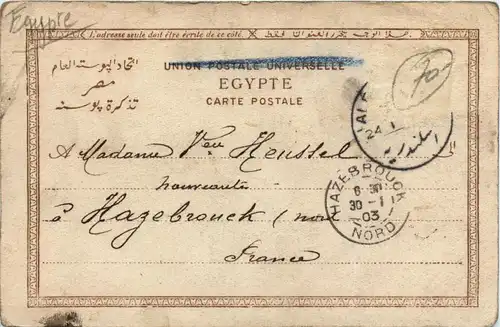 Egypte
L'adresse seule doit être écrite de ce côté.
اتحاد البوسته العام
مصر
تذكرة بوسته
UNION POSTALE UNIVERSELLE
EGYPTE
CARTE POSTALE
70-
AL
24 1
اسكندرية
A Madame Veu Heussel
nouveautés
à Hazebrouck (nord
France
HAZEBROUCK
30 - 1
03
NORD